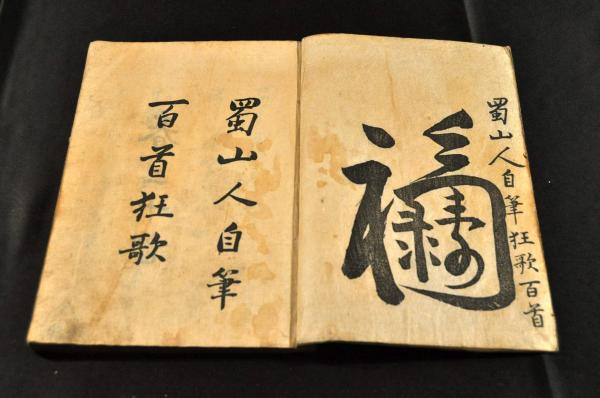 蜀山人自筆狂歌百首
蜀山人自筆
百首狂歌